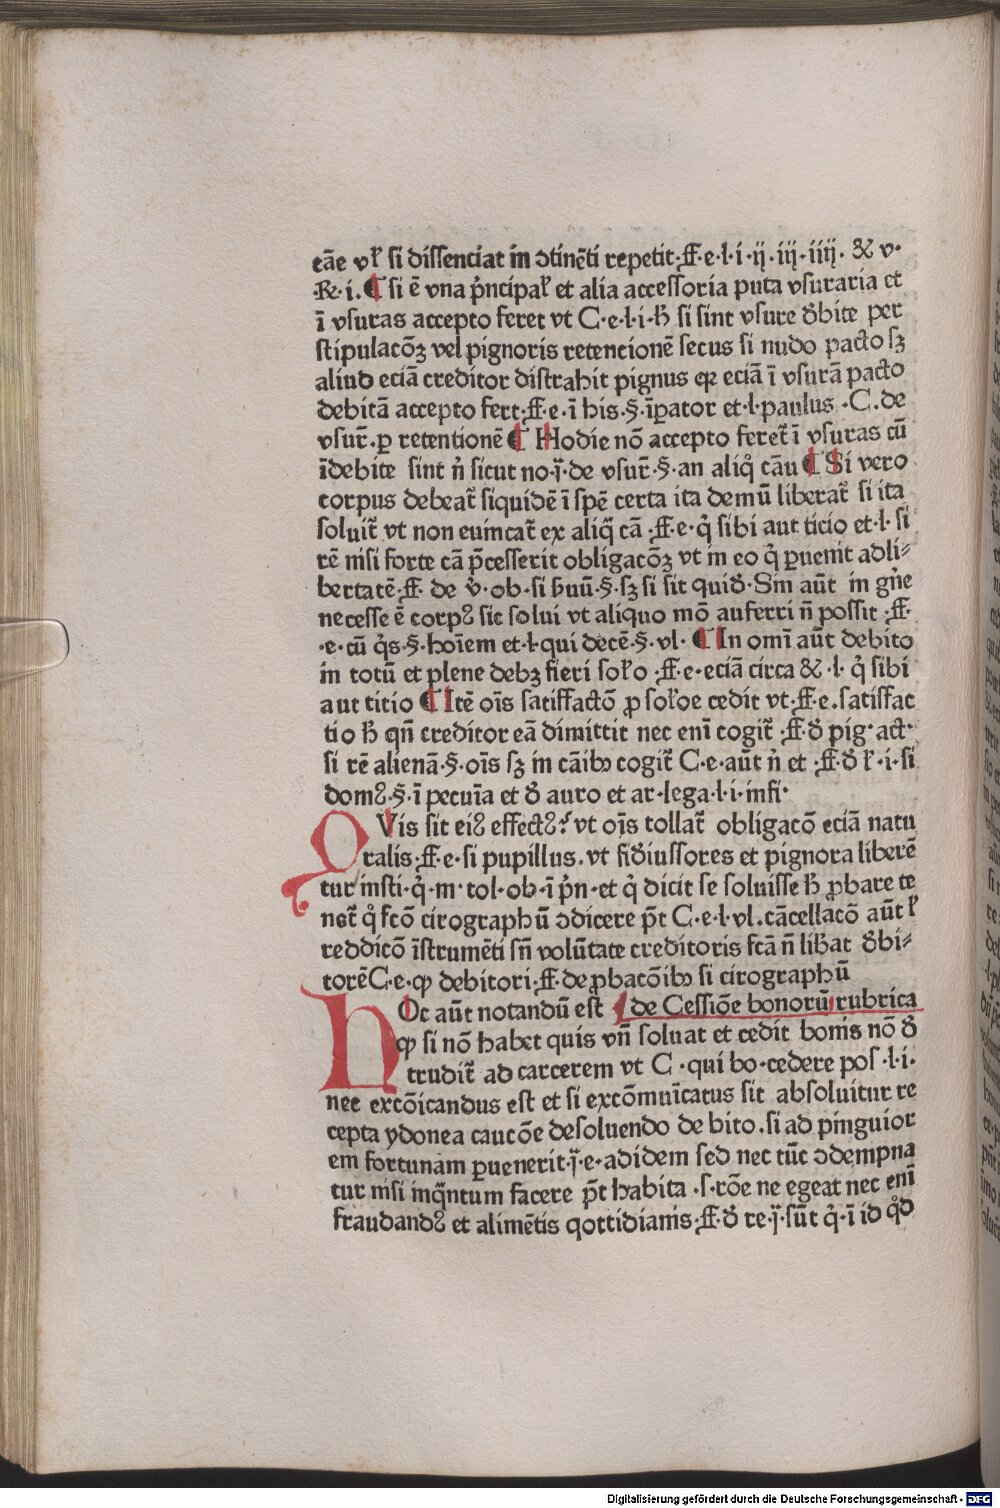 eāe vł si dissenciat in ↄtinēti repetit·ff·e·l·i·ij·iij·iiij· & v·
·R·i.¶ si ē vna p̄ncipał et alia accessoria puta vsuraria et
ī vsuras accepto feret vt C·e·l·i·ħ si sint vsure d̄bite per
stipulacōꝫ vel pignoris retencionē secus si nudo pacto sꝫ
aliud eciā creditor distrahit pignus qꝛ eciā ī vsurā pacto
debitā accepto fert·ff·e·ī his·§·īꝑator et·l·paulus ·C·de
vsur̄·ꝑ retentionē ¶ Hodie nō accepto feret̄ ī vsuras cū
īdebite sint n̄ sicut no·j̄·de vsur̄·§·an aliq̊ cāu ¶ Si vero
corpus debeat̄ siquidē ī spē certa ita demū liberat̄ si ita
soluit̄ vt non euincat̄ ex aliq̄ cā·ff·e·q̊ sibi aut ticio et·l·si
rē nisi forte cā p̄cesserit obligacōꝫ vt in eo q̊ ꝑuenit ad li⸗
bertatē·ff· de v̊·ob·si ƀuū·§·sꝫ si sit quid̄·Sin aūt in gn̄e
necesse ē corpꝰ sic solui vt aliquo mō auferri n̄ possit·ff·
·e·cū q̊s·§·hoīem et·l·qui decē·§·vl· ¶ In omī aūt debito
in totū et plene debꝫ fieri soło·ff·e·eciā circa &·l· q̊ sibi
aut titio ¶ Itē oīs satisfactō ꝓ sołoe cedit vt·ff·e.satisfac
tio ħ qn̄ creditor eā dimittit nec enī cogit̄·ff·d̄ pig·act·
si rē alienā·§·oīs sꝫ in cāibꝫ cogit̄ C·e·aūt n̄ et ·ff·d̄ ł·i·si
domꝰ·§·ī pecuīa et d̄ auro et ar·lega·l·i·infi·
QVis sit eiꝰ effectꝰ? vt oīs tollat̄ obligacō eciā natu
ralis·ff·e·si pupillus. vt fid̄iussores et pignora liberē
tur insti·q̊·m·tol·ob·ī p̄n·et q̊ dicit se soluisse ħ ꝓbare te
net̄ q̊ fcō cirographū ↄdicere p̄t C·e·l·vl.cācellacō aūt ł
reddicō īstrumēti sn̄ volūtate creditoris fcā n̄ liƀat d̄bi⸗
torē C·e·ꝙ debitori·ff·de ꝓbacōibꝫ si cirographū
HOc aūt notandū est ¶ de Cessiōe bonorū rubrica
ꝙ si nō habet quis vn̄ soluat et cedit bonis nō d̄
trudit̄ ad carcerem vt C·qui bo·cedere pos·l·i·
nec excōicandus est et si excōmuīcatus sit absoluitur re
cepta ydonea caucōe desoluendo debito.si ad pinguior
em fortunam ꝑuenerit·j̄·e·adidem sed nec tūc ↄdempna
tur nisi inq̄ntum facere p̄t habita ·s·rōe ne egeat nec enī
fraudandꝰ et alimētis qottidianis·ff·d̄ re·j̄·sūt q̊·ī id q̊d
Digitalisierung gefördert durch die Deutsche Forschungsgemeinschaft - DFG